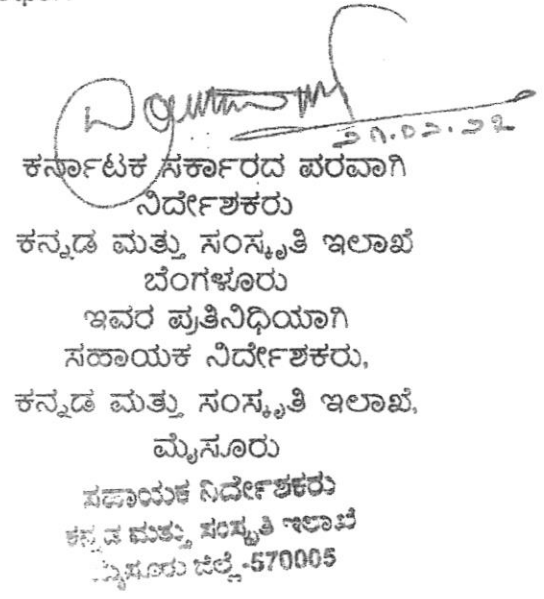 ಕರ್ನಾಟಕ ಸರ್ಕಾರದ ಪರವಾಗಿ
ನಿರ್ದೇಶಕರು
ಕನ್ನಡ ಮತ್ತು ಸಂಸ್ಕೃತಿ ಇಲಾಖೆ
ಬೆಂಗಳೂರು
ಇವರ ಪ್ರತಿನಿಧಿಯಾಗಿ
ಸಹಾಯಕ ನಿರ್ದೇಶಕರು,
ಕನ್ನಡ ಮತ್ತು ಸಂಸ್ಕೃತಿ ಇಲಾಖೆ,
ಮೈಸೂರು
ಸಹಾಯಕ ನಿರ್ದೇಶಕರು
ಕನ್ನಡ ಮತ್ತು ಸಂಸ್ಕೃತಿ ಇಲಾಖೆ
ಮೈಸೂರು ಜಿಲ್ಲೆ-570005